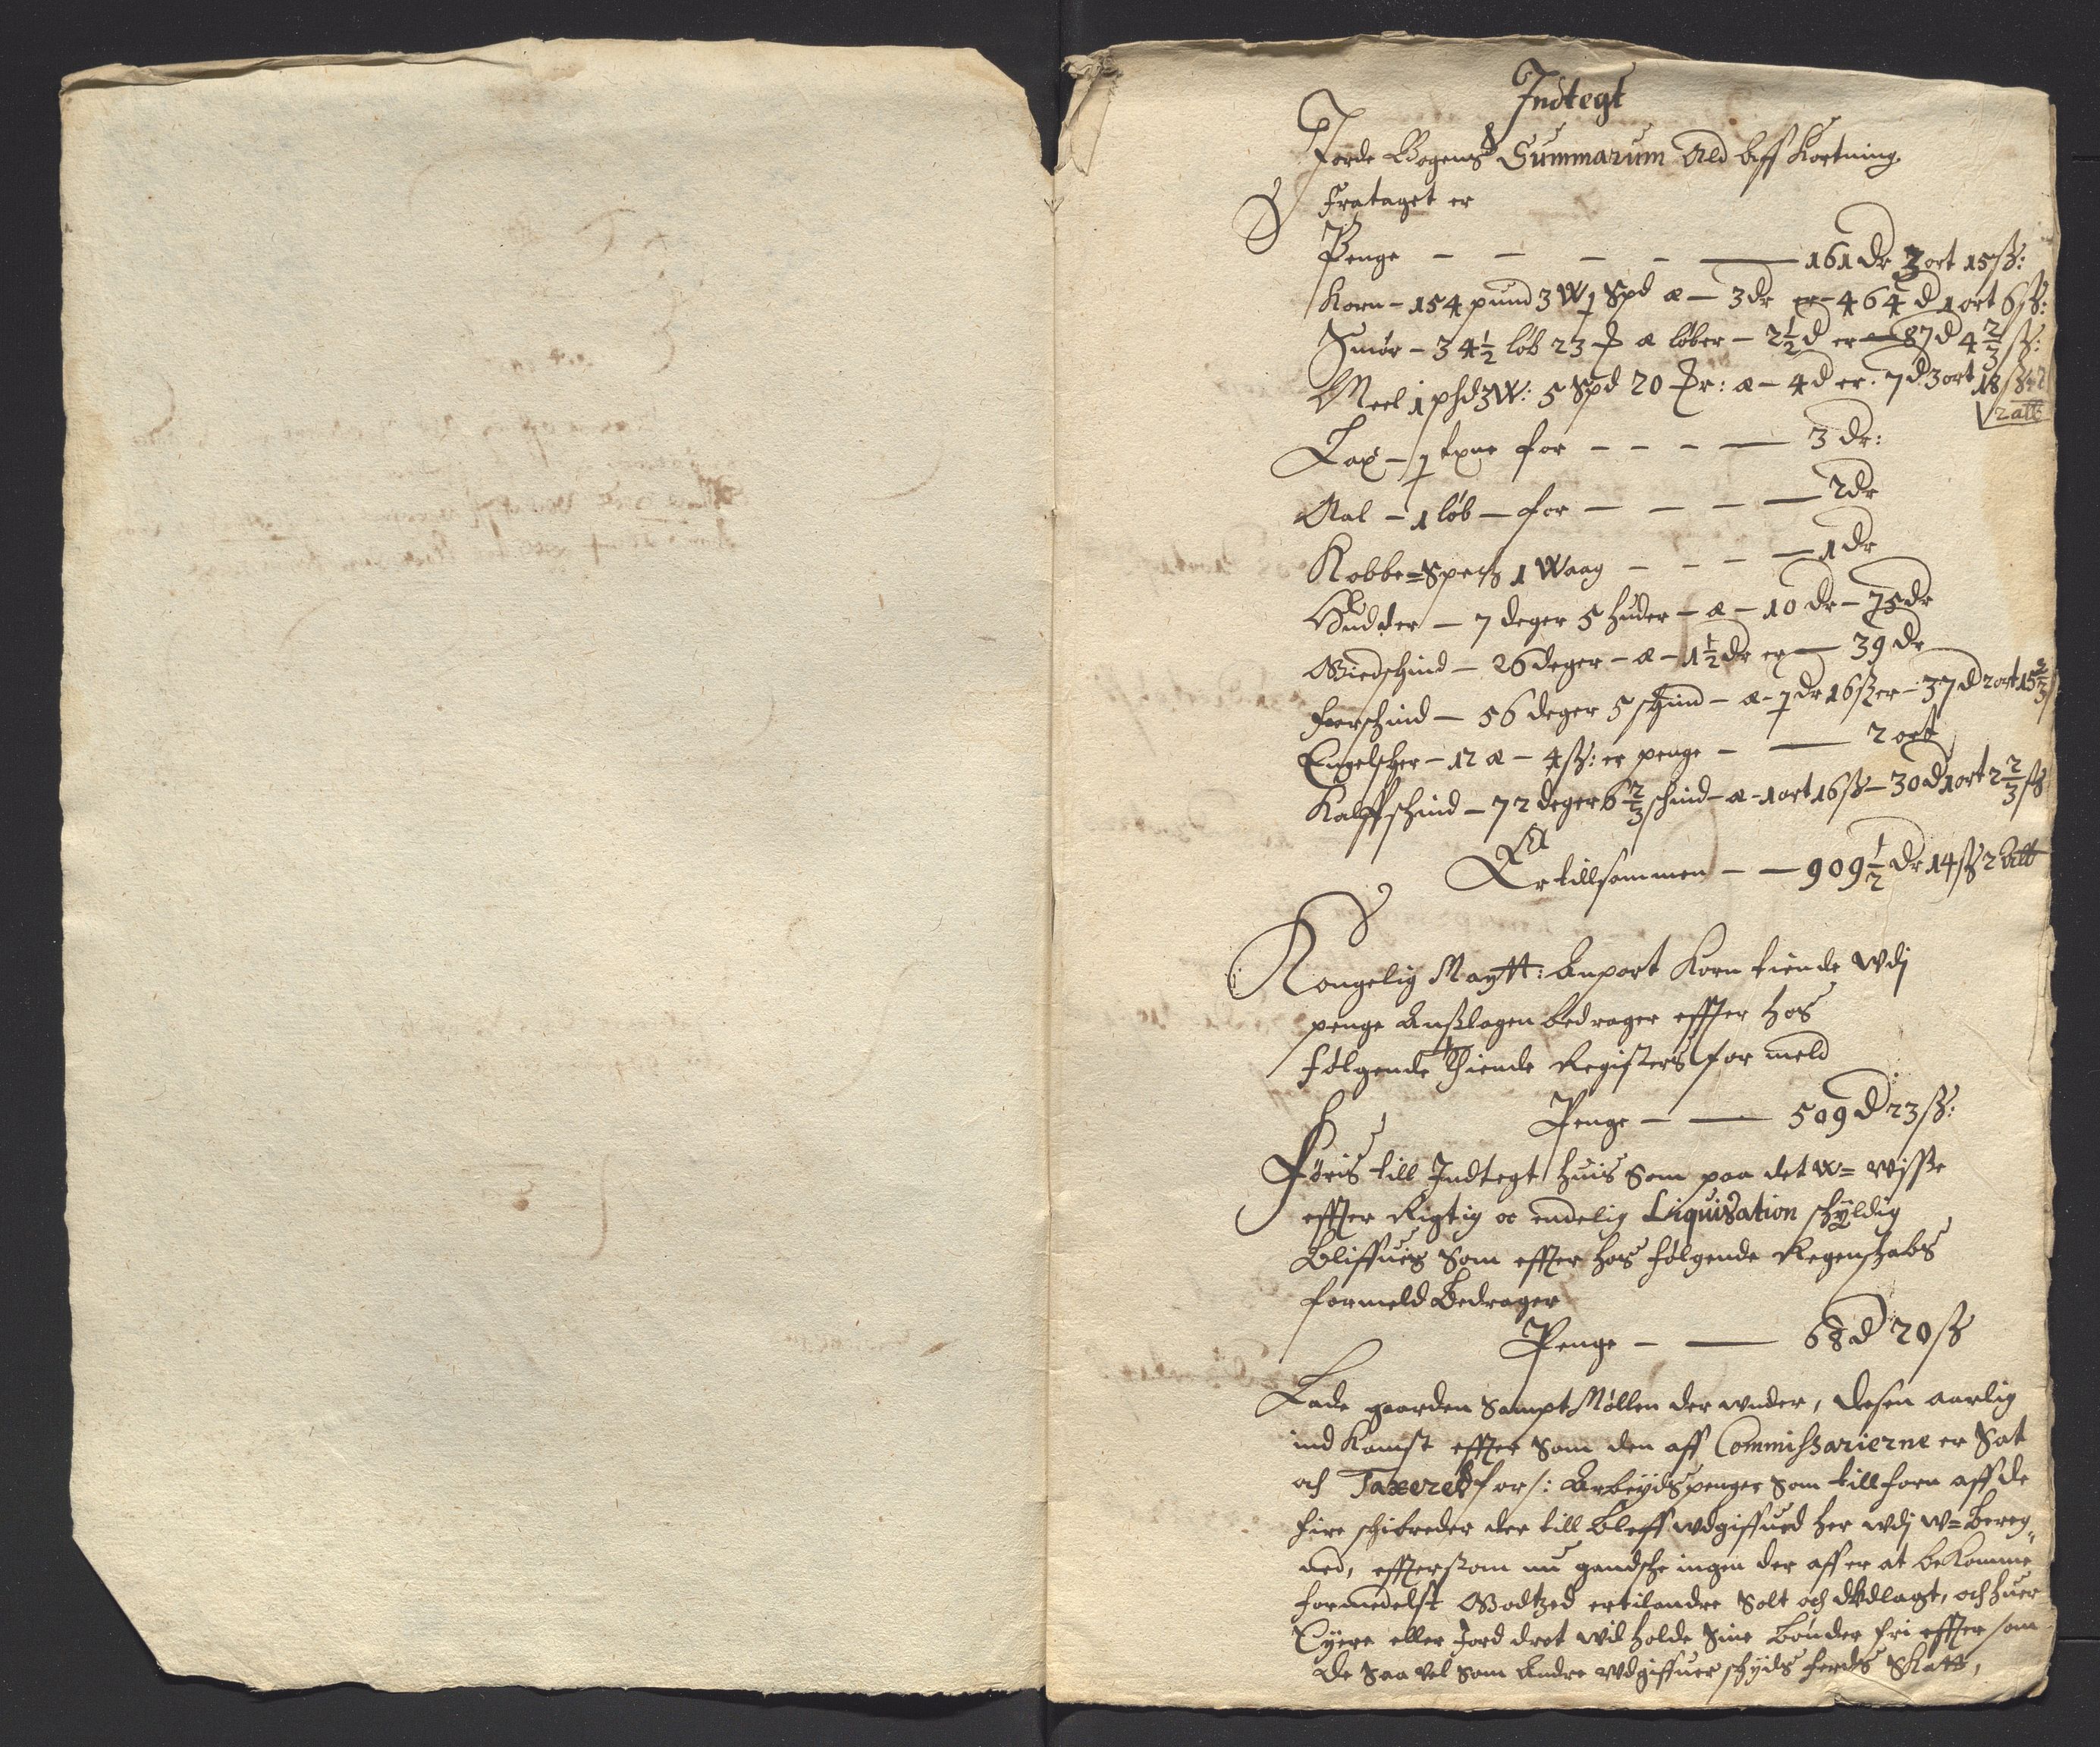 Indtegt
Jorde Bogens Summarum Ald aff Kortning
Frataget er
Penge — — — — — 161 dr 3 ort 15 sz:
Korn – 154 pund 3 W 1 Spd a – 3 dr er – 464 d 1 ort 6 sz:
Smør – 34½ løb 23 a løber – 2½ d er – 87 d 4⅔ sz:
Meel 1 phd 3 W: 5 Spd 20 a – 4 d er 7 d 3 ort 18 sz
2 alb
Lax – 1 tynne for – – – – 3 dr:
Aal – 1 løb – for – – – – 2 dr
Kobbe=Speck 1 Waag – – – – 1 dr
Hudder – 7 deger 5 huder – a – 10 dr – 75 dr
Giedschind – 26 deger – a – 1½ dr er – 39 dr
Forschind – 56 deger 5 schind – a – 1 dr 16 sz er – 37 d 2 ort 15⅔ s
Engelscher – 12 a – 4 sz: er penge – — 2 ort
Kalffschind – 72 deger 6⅔ schind – a – 1 ort 16 sz – 30 d 1 ort 2⅔ sz
Er tillsammen – — 909½ dr 14 sz 2 Alb
Kongelig Maytt: Anpart Korn tiende wdj
penge Anslagen bedrager effter hos
følgende thiende Registers formeld
Penge – — 509 d 23 sz:
Føris till Indtegt huis Som paa det w= wisse
effter Rigtig oc endelig Liquidation schyldig
Bliffues Som effter hos følgende Regenschabs
formeld Bedrager
Penge – — 68 d 20 sz
Lade gaarden Sampt Møllen der wnder, desen aarlig
ind Komst effter Som den aff Commissarierne er Sat
och Taxered for /: Arbeydspenger Som tillforn aff de
fire schibreder der till Bleff wdgiffued her wdj w=Bereg„
ned, efftersom nu gandsche ingen der aff er at bekomme
formedelst Godtzed er tilandre Solt och dVdlagt, och huer
Eyere eller Jord drot wil holde Sine Bønder fri effter som
de Saa vel Som Andre wdgiffuer schyds ferds Skatt,